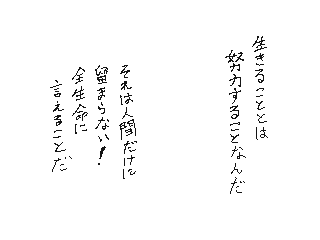 生きることとは
努力することなんだ
それは人間だけに
留まらない!
全生命に
言えることだ